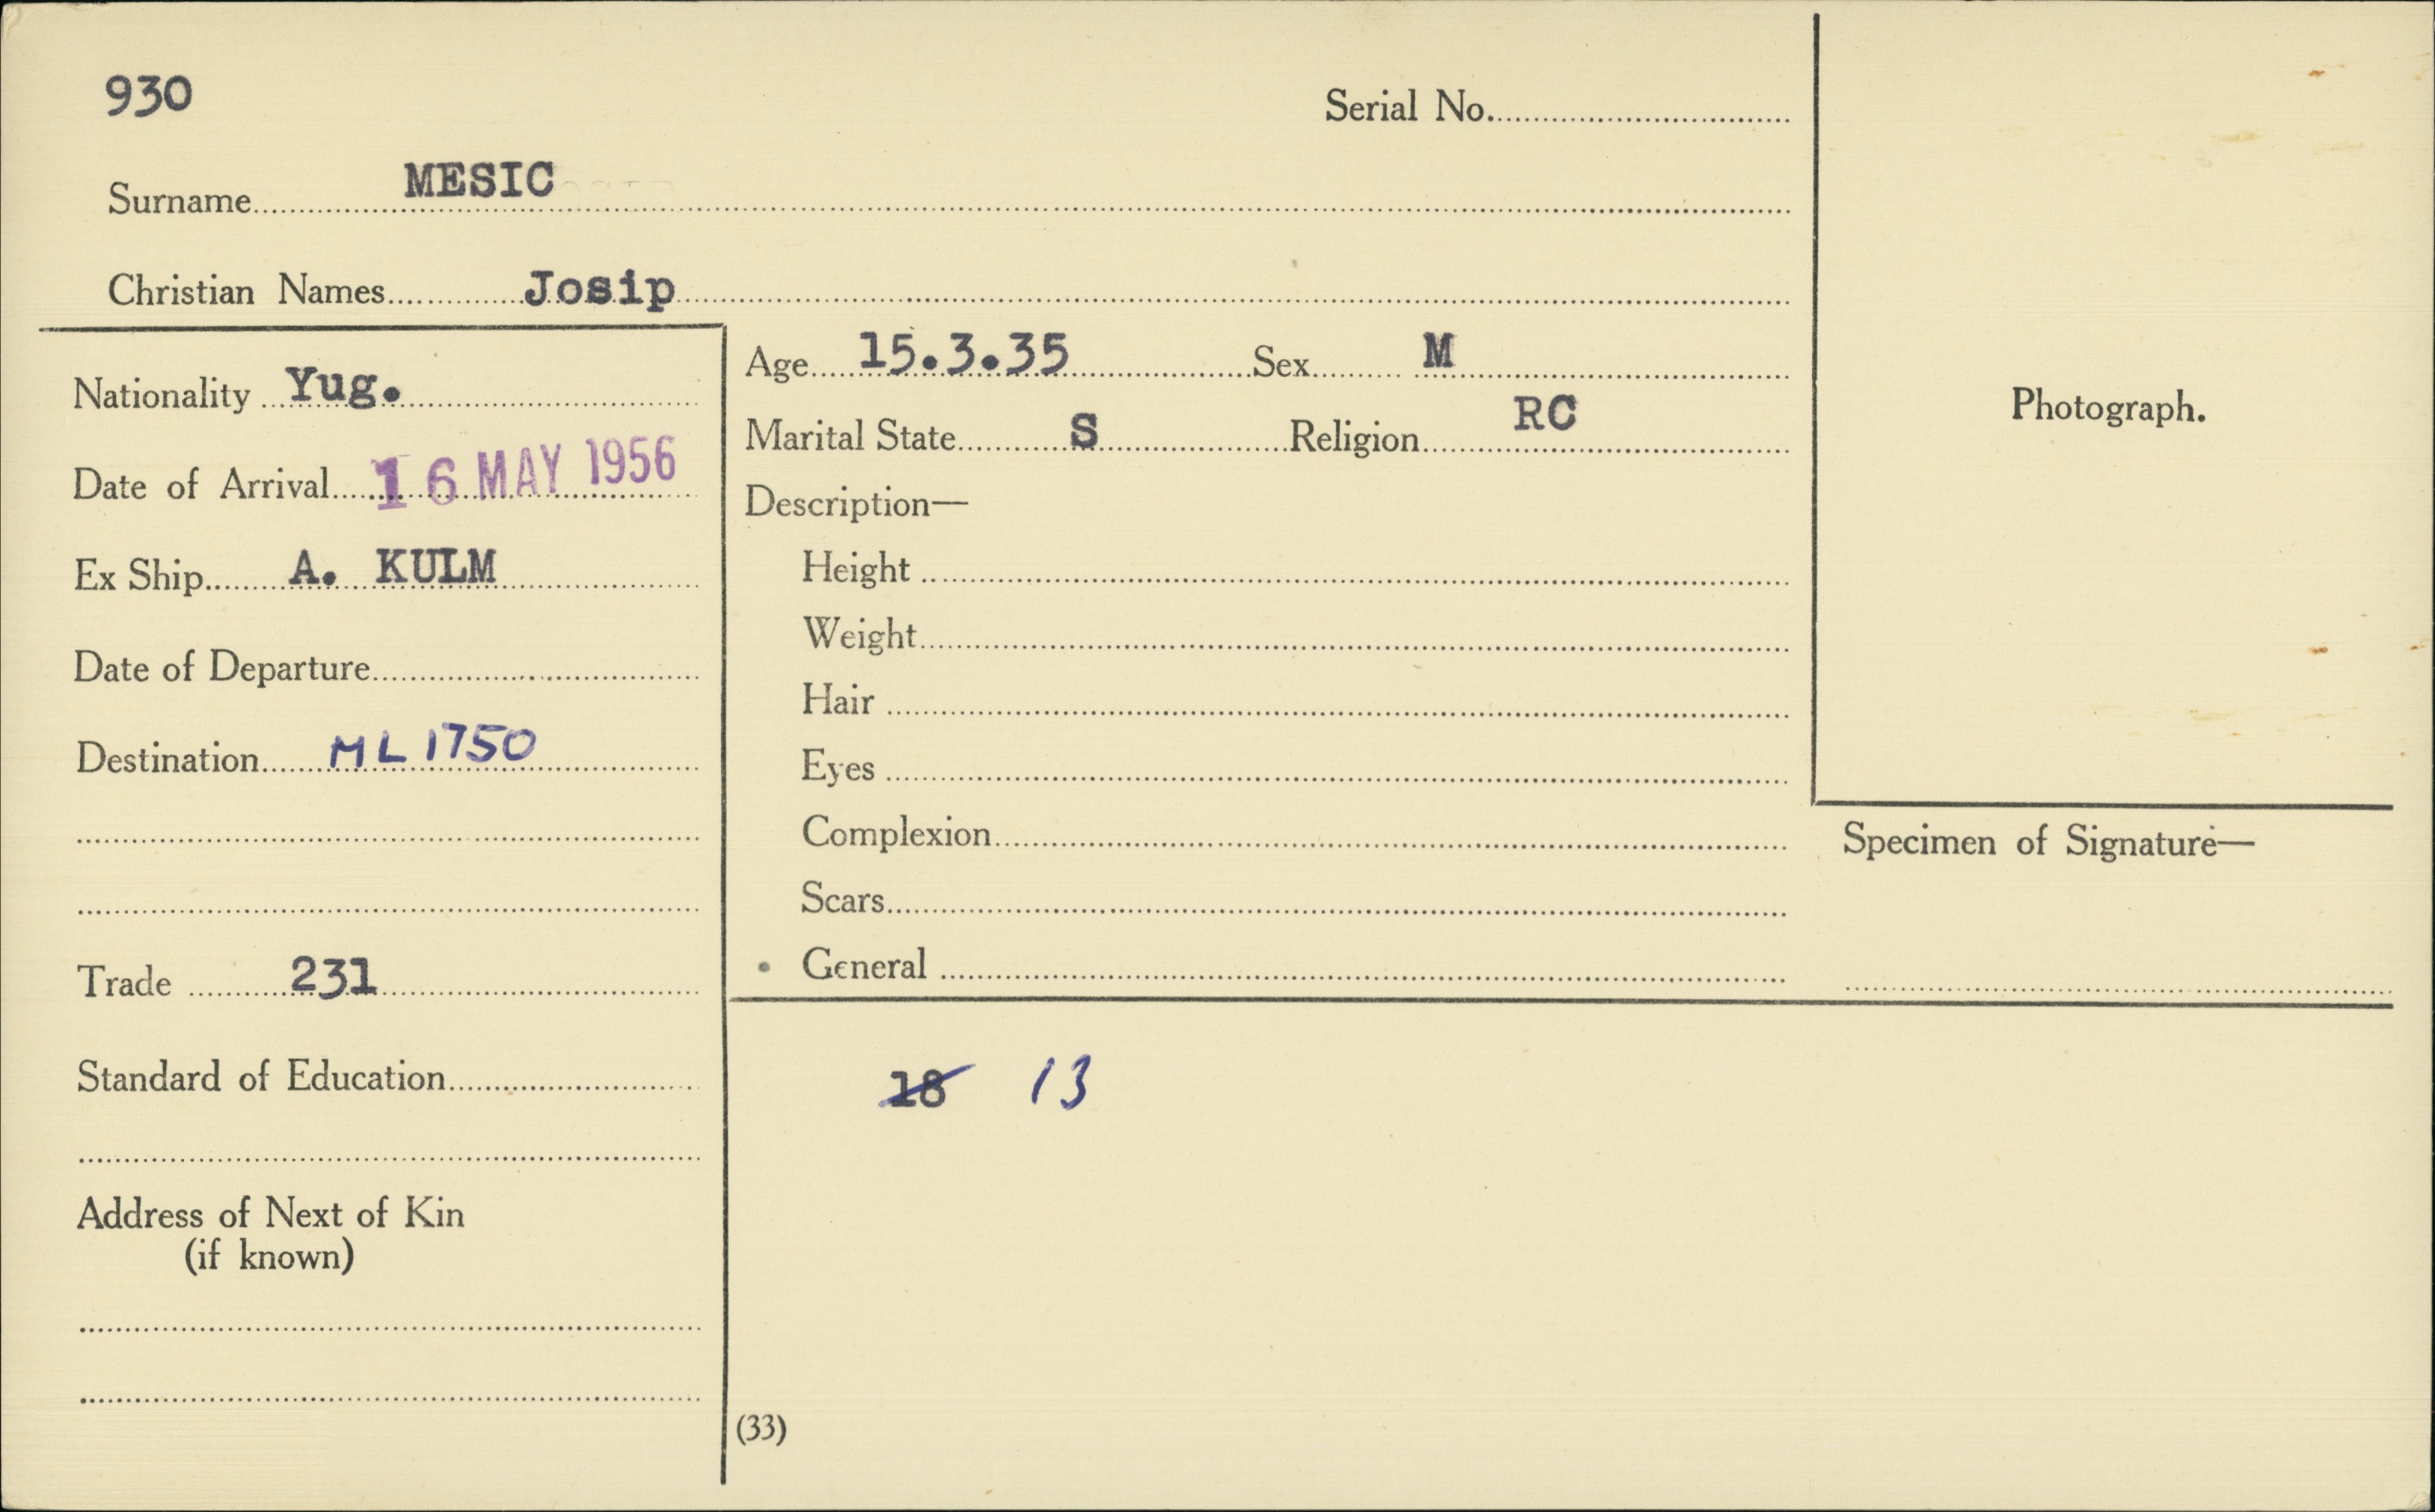 930
Serial No.
Surname MESIC
Christian Names Josip
Nationality Yug.
Date of Arrival 16 MAY 1956
Ex Ship A. KULM
Date of Departure
Destination ML 1750
Trade 231
Standard of Education
Address of Next of Kin
(if known)
Age 15.3.35 Sex M
Marital State S Religion RC
Description—
Height
Weight
Hair
Eyes
Complexion
Scars
General
Photograph.
Specimen of Signature—
18 13
(33)